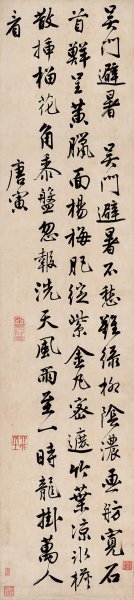 吳門避暑 吳門避暑不愁難綠柳陰濃畫舫寬石
首鮮呈黃臘面楊梅肥綻紫金丸密遮竹葉涼冰檻
散插榴花角黍盤忽報洗天風雨至一時龍掛萬人
看
唐寅